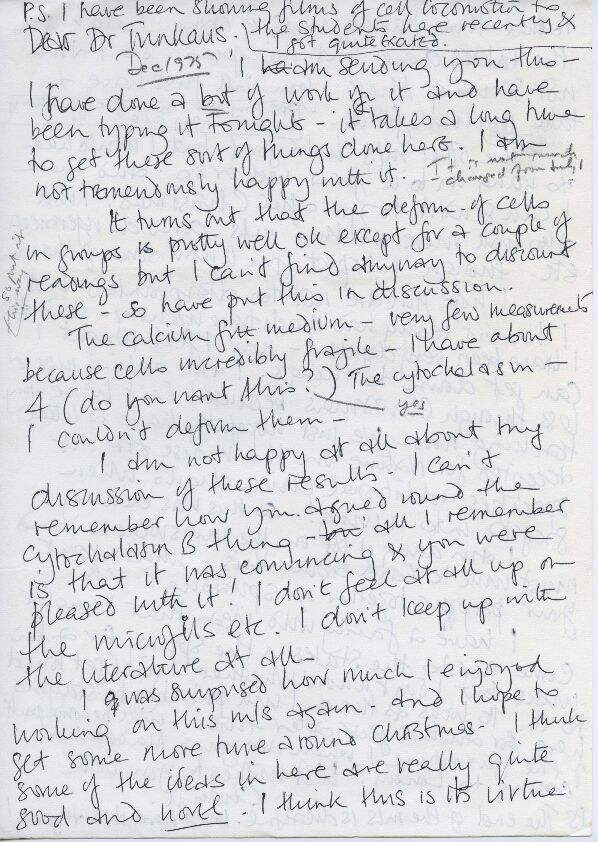 P.S. I have been showing films of cell locomotion to
the students here recently &
I got quite excited.
Dear Dr Trinkaus.
Dec 1975
I am sending you this -
I have done a bit of work of it and have
been typing it tonight - it takes a long time
to get these sort of things done here. I am
not tremendously happy with it.
It is not
changed from July!
It turns out that the deform. of cells
in groups is pretty well ok except for a couple of
readings but I can't find anyway to discount
these - so have put this in discussion.
The calcium free medium - very few measurements
because cells incredibly fragile - I have about
4 (do you want this.) The cytochalasin -
yes
I couldn't deform them -
I am not happy at all about my
discussion of these results. I can't
remember how you argued round the
cytochalasin B thing - all I remember
is that it was convincing & you were
pleased with it! I don't feel at all up on
the microfils etc. I don't keep up with
the literature at all -
I was surprised how much I enjoyed
working on this m/s again - and I hope to
get some more time around Christmas - I think
some of the ideas in here are really quite
good and novel - I think this is its virtue